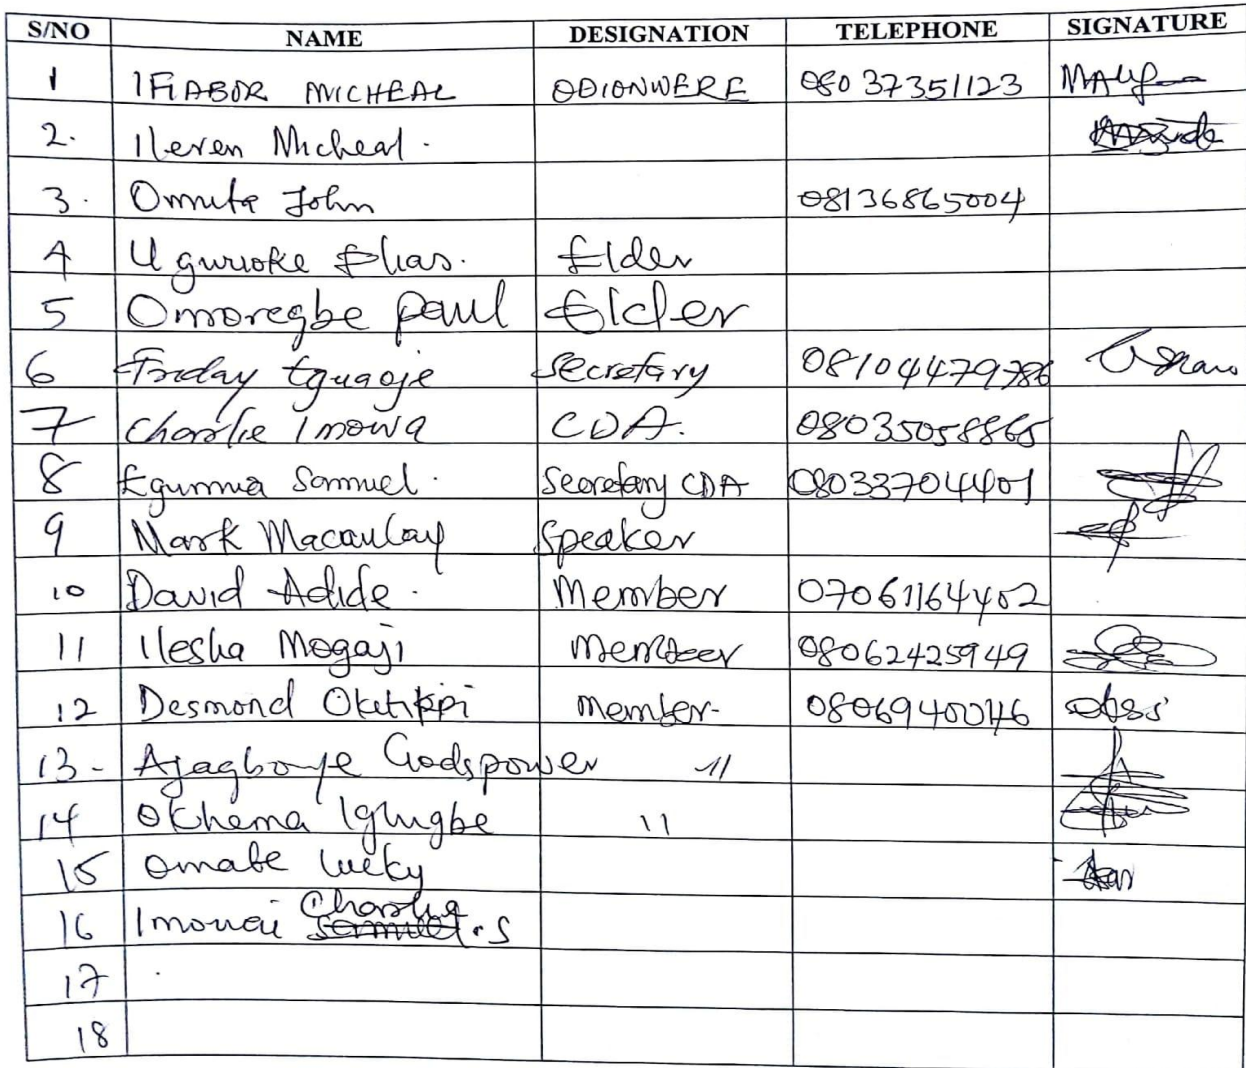 S/NO NAME DESIGNATION TELEPHONE SIGNATURE
1 IFIABOR MICHEAL ODIONWERE 08037351123
2. Ileren Micheal.
3. Omuta John 08136865004
4 Ugwuoke Elias. Elder
5 Omoregbe Paul Elder
6 Friday Eguaoje Secretary 08104479786
7 Charlie Imowa CDA. 08035058865
8 Egunma Samuel. Secretary CDA 08033704401
9 Mark Macaulay Speaker
10 David Adide. Member 07061164402
11 Ilesha Mogaji Member 08062425949
12 Desmond Oketikpi Member 08069400146
13- Ajagboye Godspower 11
14 Okhema Ighugbe 11
15 Omabe Lucky
16 Imouai Charlie .S
17
18